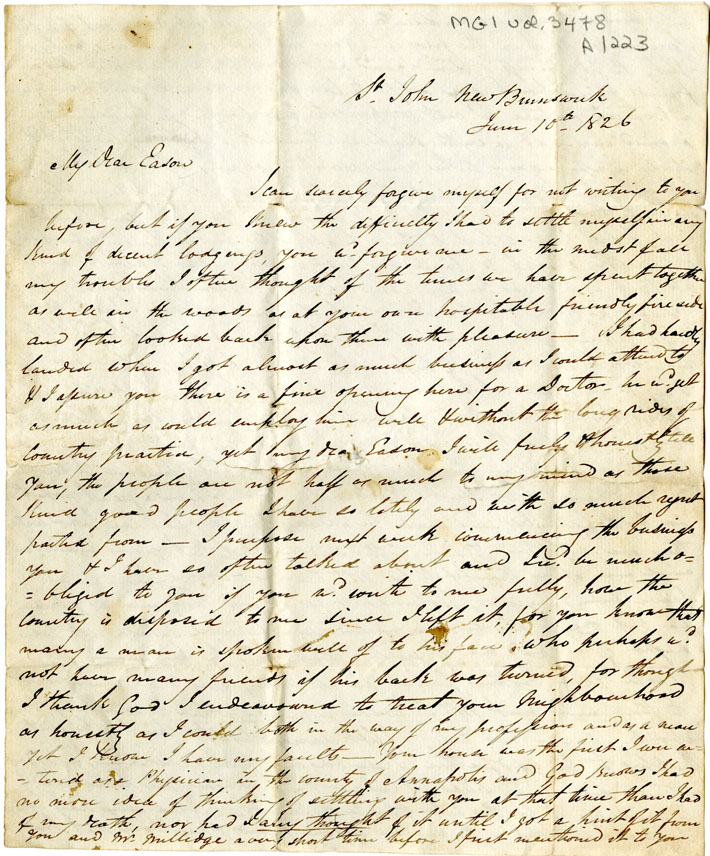 MG1 Vol. 3478
A 1223
St. John New Brunswick
June 10th 1826
My Dear Eason
I can scarcely forgive myself for not writing to you
before, but if you knew the difficulty I had to settle myself in any
kind of decent lodgings, you wd. forgive me – in the midst of all
my troubles I often thought of the times we have spent together
as well in the woods as at your own hospitable friendly fire side
and often looked back upon them with pleasure — I had hardly
landed when I got almost as much business as I could attend to
& I assure you there is a fine opening here for a Doctor – he wd. get
as much as would employ him well & without the long rides of
Country practice, yet my dear Eason I will freely & honestly tell
you, the people are not half as much to my mind as those
kind good people I have so lately and with so much regret
parted from — I purpose next week commencing the business
you & I have so often talked about and Id. be much o-
-bliged to you if you wd. write to me fully, how the
Country is disposed to me since I left it, for you know that
many a man is spoken well of to his face, who perhaps wd.
not have many friends if his back was turned, for though
I thank God I endeavoured to treat your Neighbourhood
as honestly as I could both in the way of my profession and as a man
yet I know I have my faults — Your house was the first I ever at-
-tend as a Physician in the county of Annapolis and God knows I had
no more idea of thinking of settling with you at that time than I had
of my death, nor had I any thought of it until I got a hint of it from
you and Mr. Millidge a very short time before I first mentioned it to you